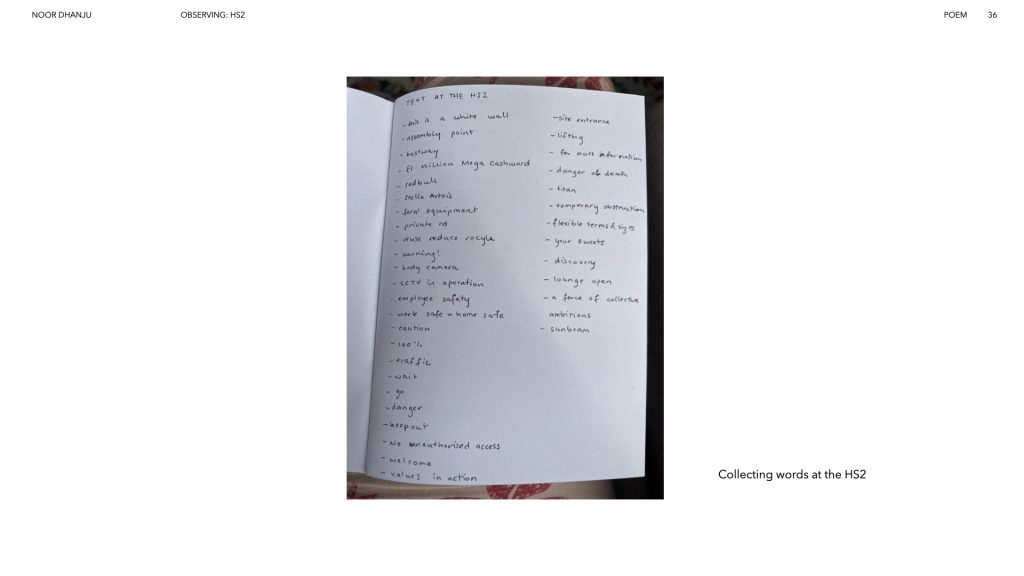 NOOR DHANJU
OBSERVING: HS2
POEM
36
TEXT AT THE HS2
- this is a white wall
- assembly point
- bestway
- £1 Million Mega Cashword
- redbull
- Stella Artois
- feral equipment
- private rd
- reuse reduce recycle
- warning!
- body camera
- CCTV in operation
- employee safety
- work safe = home safe
- caution
- 100%
- traffic
- wait
- go
- danger
- keep out
- No unauthorised access
- welcome
- values in action
- site entrance
- lifting
- for more information
- danger of death
- titan
- temporary obstruction
- flexible terms & sizes
- your sweets
- discovery
- lounge open
- a force of collective
ambitions
- sunbeam
Collecting words at the HS2